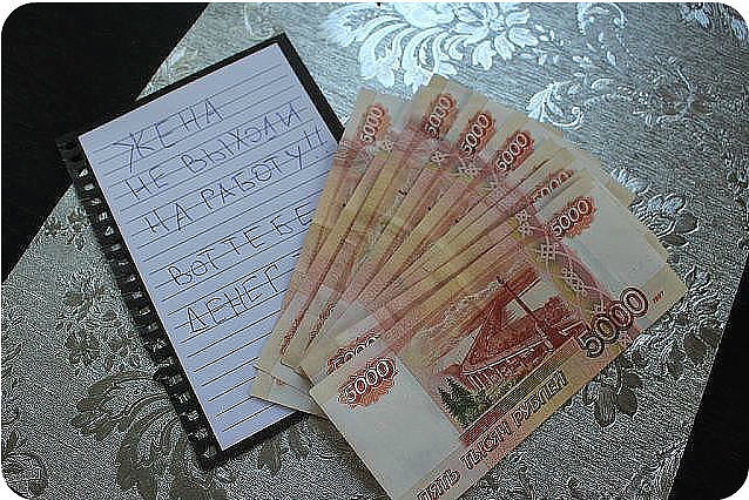 ЖЕНА
НЕ ВЫХОДИ
НА РАБОТУ!!
ВОТ ТЕБЕ
ДЕНЕГ
5000
5000
5000
5000
5000
5000
5000
5000
ПЯТЬ ТЫСЯЧ РУБЛЕЙ